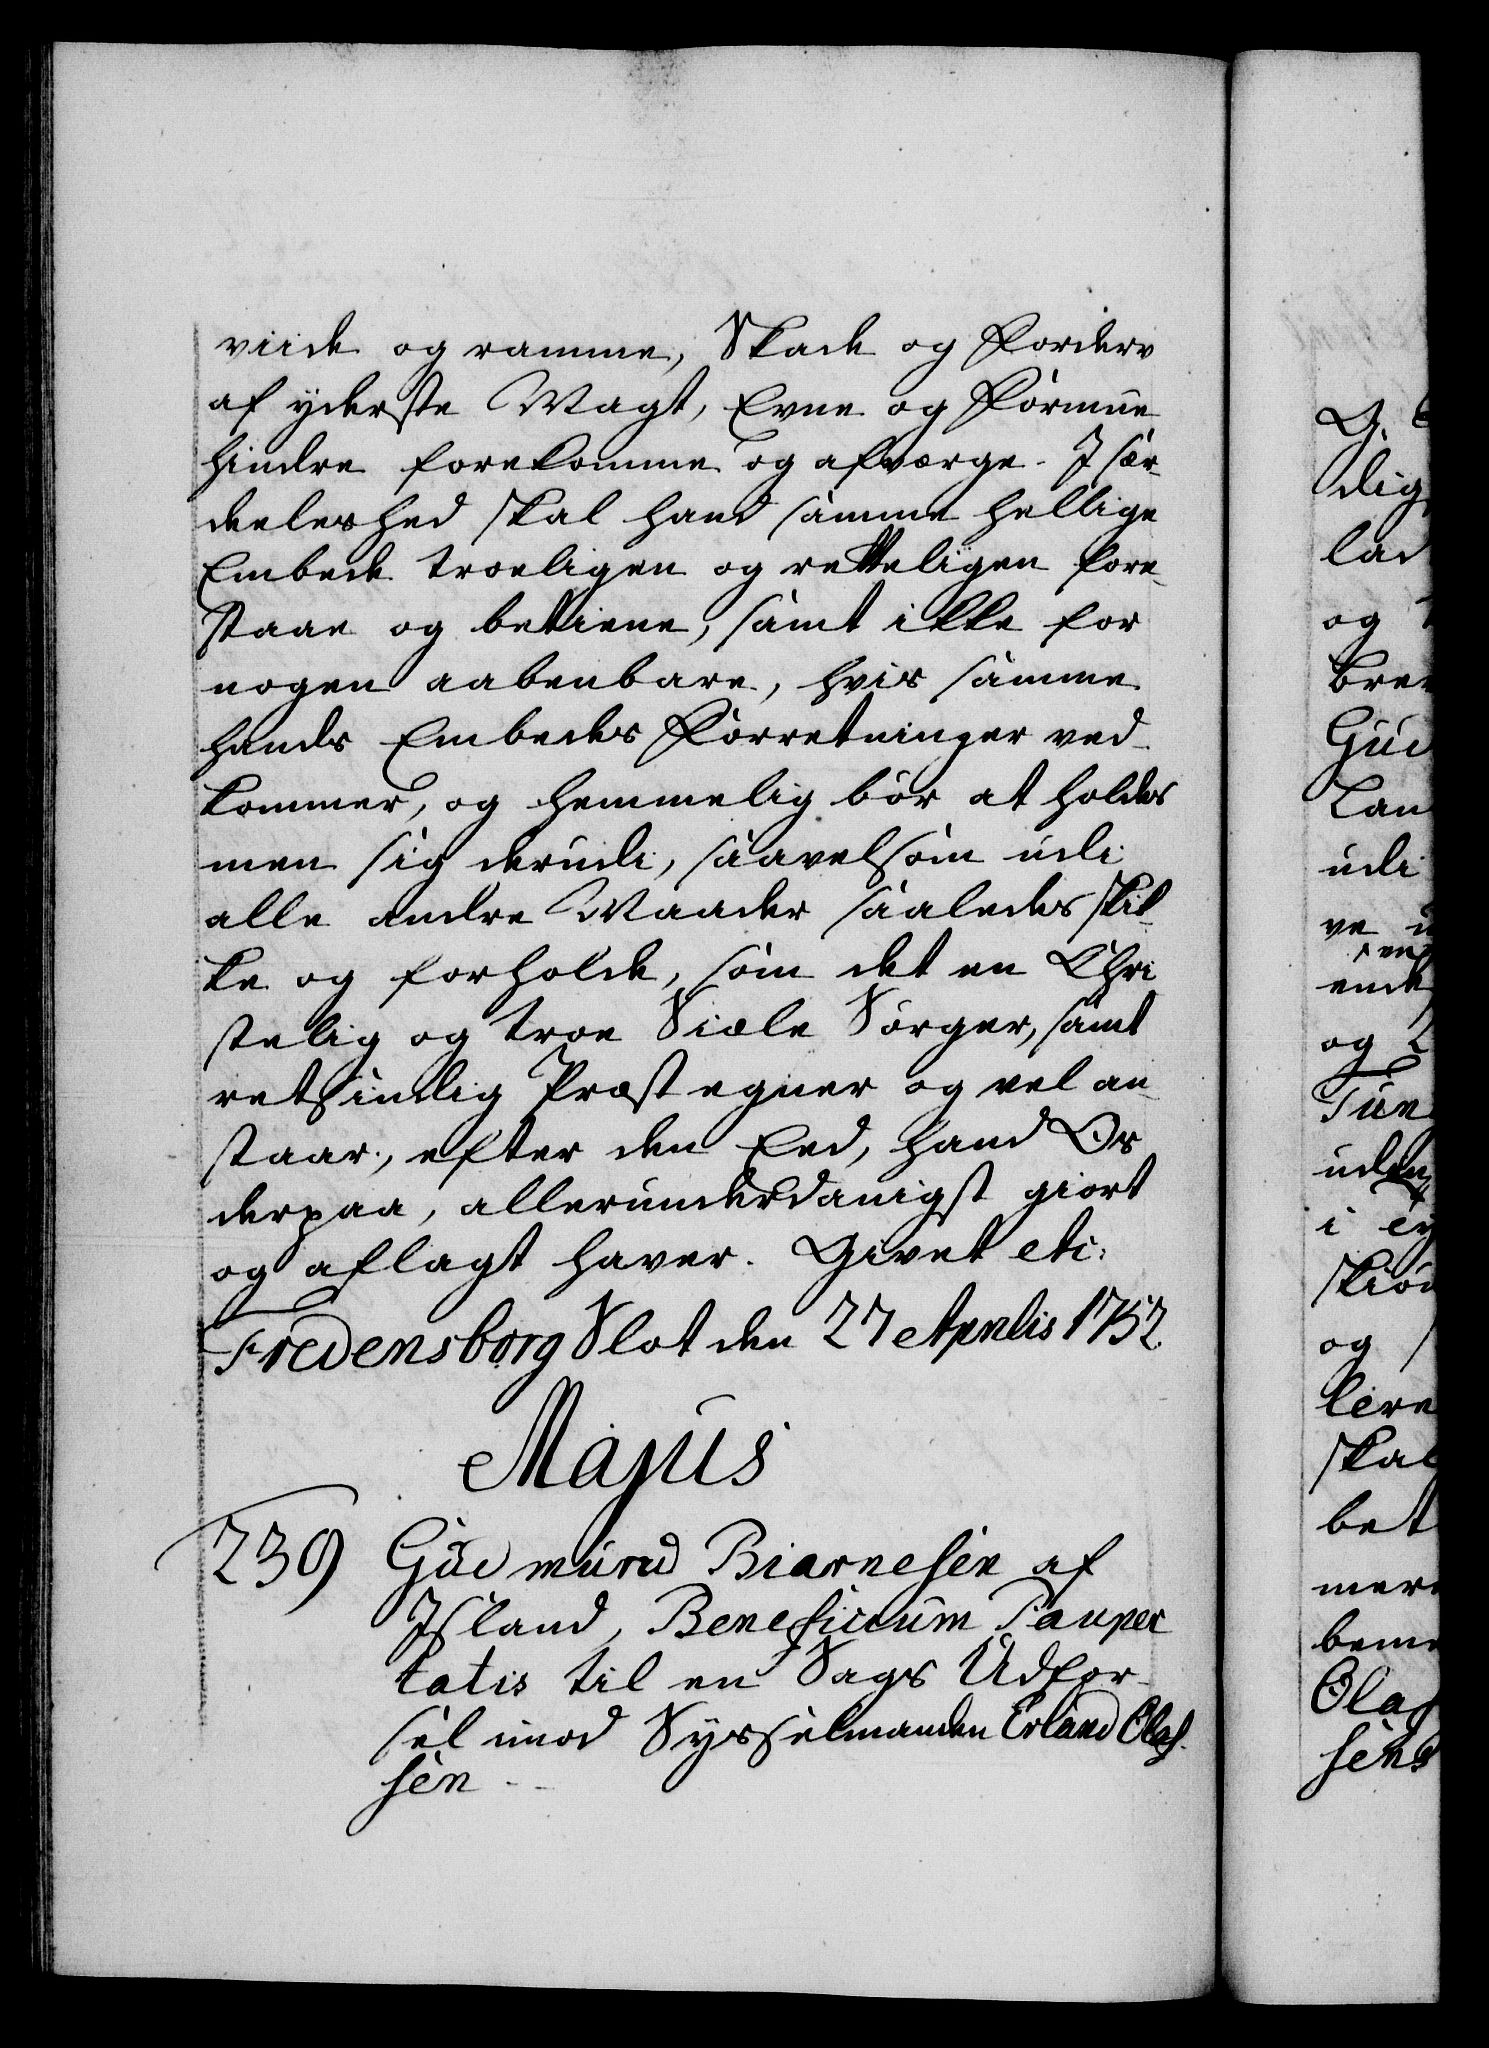 viide og ramme, Skade og Forderv
af yderste Magt, Evne og Formue
hindre forekomme og afværge. I sær-
deeleshed skal hand samme hellige
Embede troeligen og retteligen fore-
staae og betiene, samt ikke for
nogen aabenbare, hvis samme
hands Embedes Forretninger ved-
kommer, og hemmelig bør at holdes
men sig derudi, saavelsom udi
alle andre Maader saaledes skik-
ke og forholde, som det en Chri
stelig og troe Siæle Sørger, samt
retsindig Præst egner og vel an-
staar, efter den Eed, hand Os
derpaa, allerunderdanigst giort
og aflagt haver. Givet etc:
Fredensborg Slot den 27 Aprilis 1752
Majus
239 Gudmund Biarnesen af
Island, Beneficium Pauper
tatis til en Sags Udfør-
sel imod Sysselmanden Erland Olaf-
sen
G.
dig
lad
og
brev
Gud
Lan
udi
ve
ende
og
Tun
uden
i
Skiø
og
lere
skal
bet
mer
bem
Olaf
sens